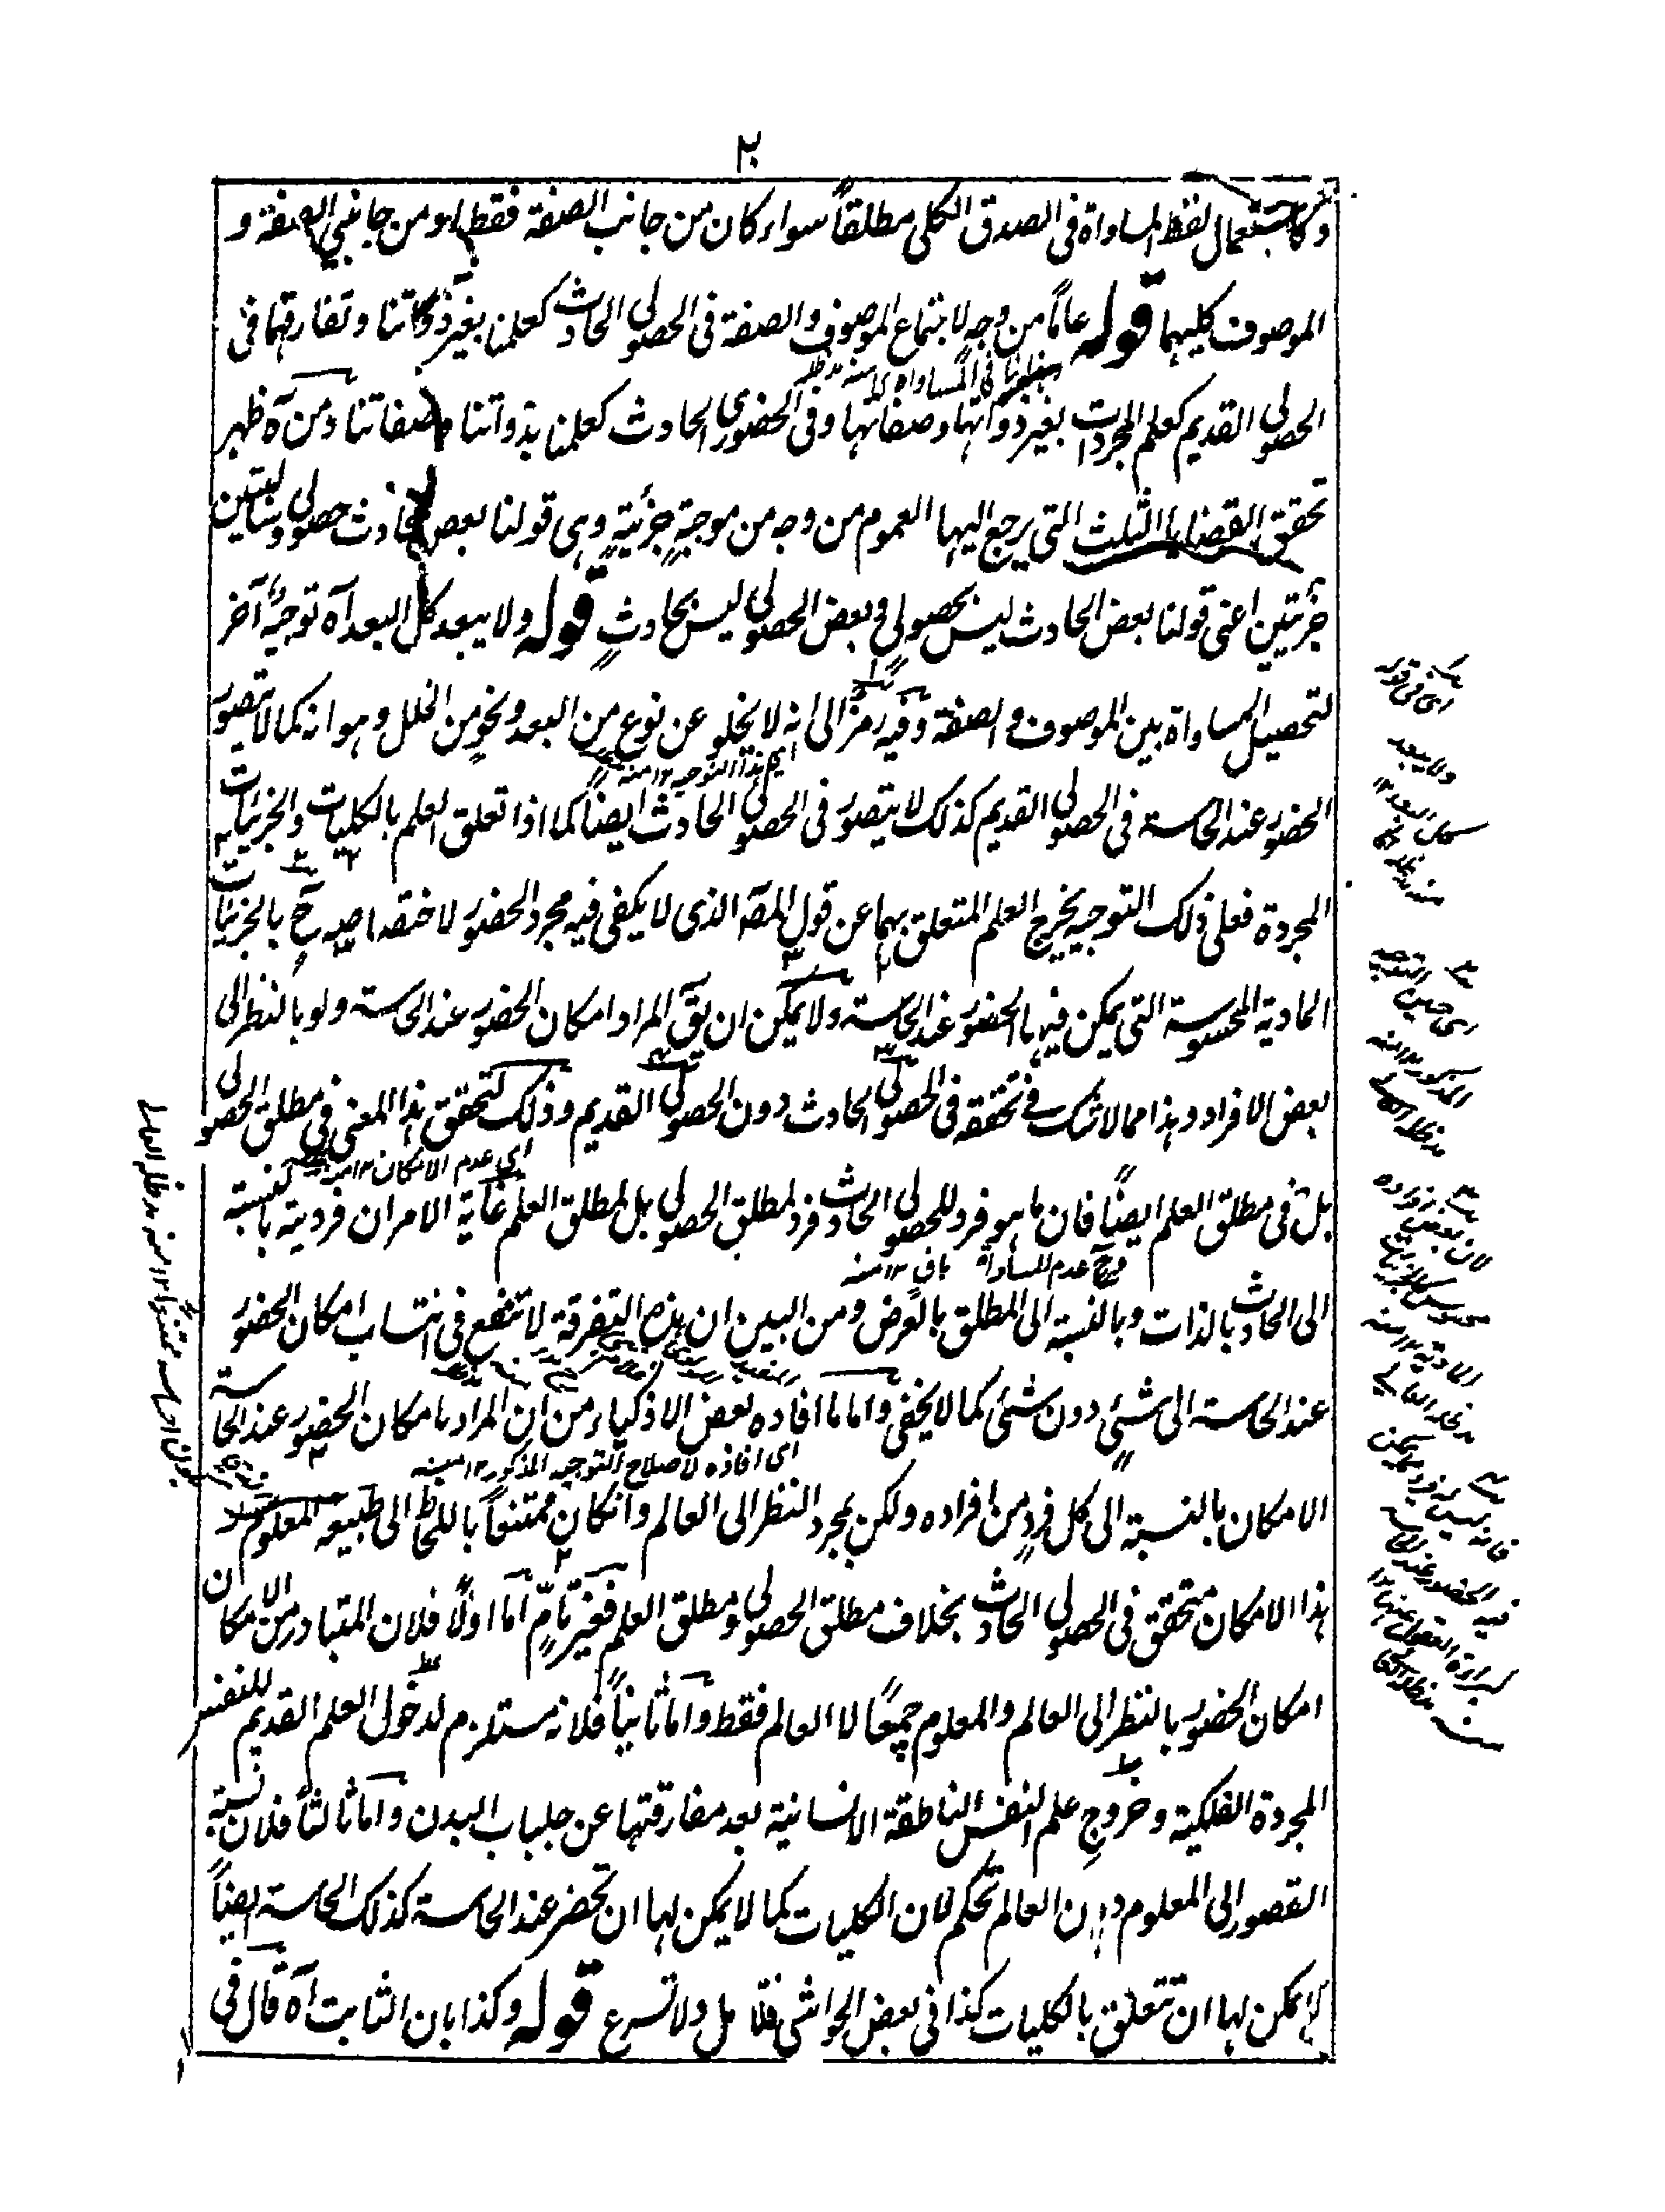 ٢
و كاستعمال لفظ المساواة فى الصدق الكلى مطلقاً سواء كان من جانب الصفة فقط او من جانبي الصفة و
الموصوف كليهما قوله عاماً من وجه لاجتماع الموصوف والصفة فى الحصولى الحادث كعلمنا بغير ذواتنا وتفارقهما فى
الحصولى القديم كعلم المجردات بغير ذواتها وصفاتها وفى الحضورى الحادث كعلمنا بذواتنا وصفاتنا ومن آه ظهر
تحقق القضايا الثلث التى يرجع اليها العموم من وجه من موجبةٍ جزئيةٍ وهى قولنا بعض الحادث حصولى وسالبتين
جزئتين اعنى قولنا بعض الحادث ليس بحصولى وبعض الحصولى ليس بحادثٍ قوله ولا يبعد كل البعد آه توجيهٌ آخر
لتحصيل المساواة بين الموصوف والصفة وفيه رمزٌ الى انه لا يخلو عن نوع من البعد ونحوٍ من الخلل وهو انه كما لا يتصور
اى هذا التوجيه ١٢ منه
الحضور عند الحاسة فى الحصولى القديم كذلك لا يتصور فى الحصولى الحادث ايضاً كما اذا تعلق العلم بالكليات والجزئيات
المجردة فعلى ذلك التوجيه يخرج العلم المتعلق بهما عن قول المصه الذى لا يكفى فيه مجرد الحضور لاختصاصه ح بالجزئيات
المادية المحسوسة التى يمكن فيها الحضور عند الحاسة ولا يمكن ان يق المراد امكان الحضور عند الحاسة ولو بالنظر الى
بعض الافراد وهذا مما لا شك فى تحققه فى الحصولى الحادث دون الحصولى القديم وذلك لتحقق هذا المعنى فى مطلق الحصولى
اى عدم الامكان ١٢ منه
بل فى مطلق العلم ايضاً فان ما هو فرد للحصولى الحادث فرد لمطلق الحصولى بل لمطلق العلم غاية الامر ان فرديته بالنسبة
فرجع عدم المساواة باق ١٢ منه
الى الحادث بالذات وبالنسبة الى المطلق بالعرض ومن البين ان هذه التفرقة لا تنفع فى انتساب امكان الحضور
عند الحاسة الى شئي دون شئي كما لا يخفى واما ما افاده بعض الاذكياء من ان المراد بامكان الحضور عند الحاسة
اى افاده لاصلاح التوجيه المذكور ١٢ منه
الامكان بالنسبة الى كل فردٍ من افراده ولكن بمجرد النظر الى العالم وانكان ممتنعاً باللحاظ الى طبيعة المعلوم
هذا الامكان متحقق فى الحصولى الحادث بخلاف مطلق الحصولى ومطلق العلم فغير تامٍّ اما اولاً فلان المتبادر من الامكان
امكان الحضور بالنظر الى العالم والمعلوم جميعاً لا العالم فقط واما ثانياً فلانه مستلزم لدخول العلم القديم للنفس
المجردة الفلكية وخروجِ علم النفس الناطقة الانسانية بعد مفارقتها عن جلباب البدن واما ثالثاً فلان نسبة
القصور الى المعلوم دون العالم تحكم لان الكليات كما لا يمكن لها ان تحضر عند الحاسة كذلك الحاسة ايضاً
لا يمكن لها ان تتعلق بالكليات كذا فى بعض الحواشى فتأمل ولا تسرع قوله وكذا بان الثابت آه قال فى
اى فى قوله
ولا يبعد
كل البعد ١٢
اى حين التوجيه
المذكور ١٢ منه